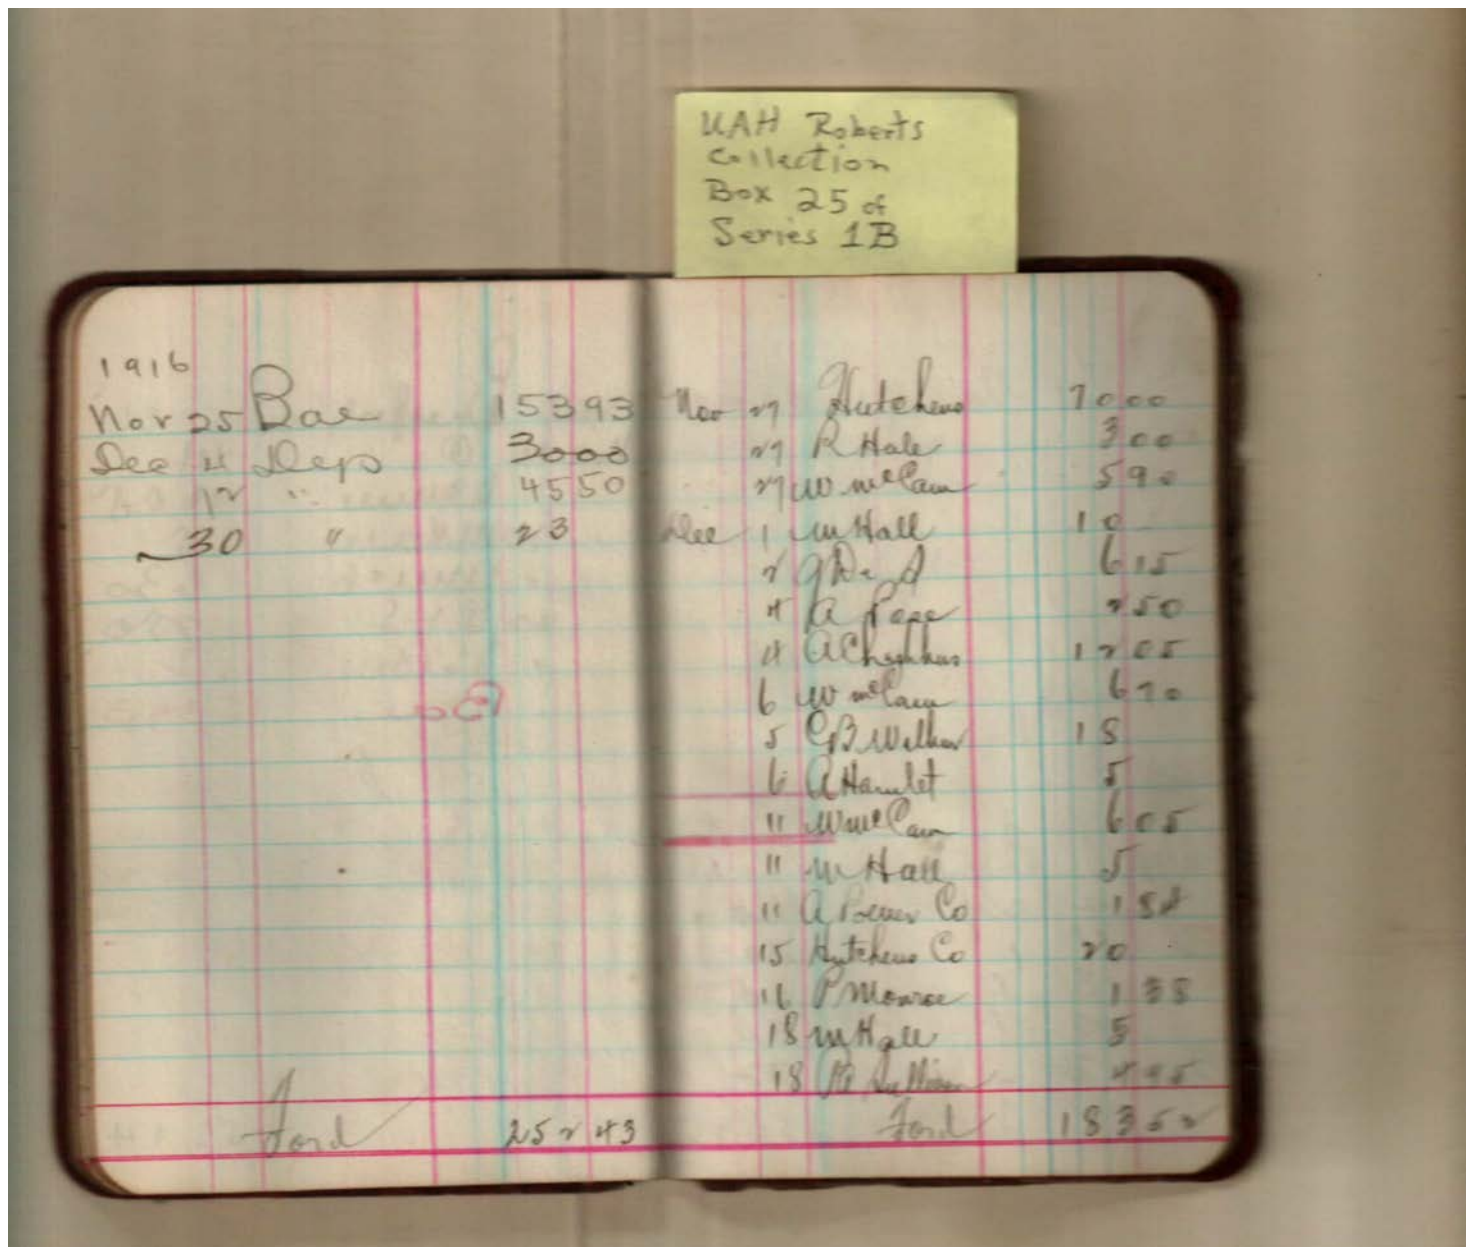 UAH Roberts
Collection
Box 25 of
Series 1B
1916
Nov 25 Bae 153 93
Dec 4 Dep 30 00
12 " 45 50
30 " 23
Ford 252 43
Nov 27 Hutchens 70 00
27 R Hale 3 00
27 W McCam 5 90
Dec 1 M Hall 10
2 6 15
4 A Pope 2 50
4 12 05
6 W McCam 6 70
5 CB Walker 18
6 A Hamlet 5
11 W McCam 6 05
11 M Hall 5
11 A Power Co 1
15 Hutchens Co 20
16 P Monroe 1 38
18 M Hall 5
18 Sullivan
Ford 183 52